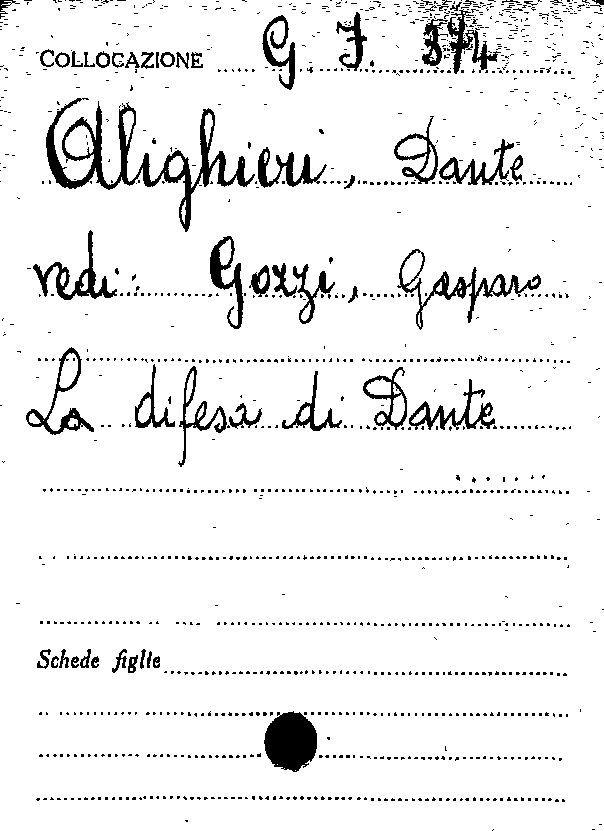 COLLOCAZIONE G. J. 374
Alighieri, Dante
vedi: Gozzi, Gasparo
La difesa di Dante
Schede figlie